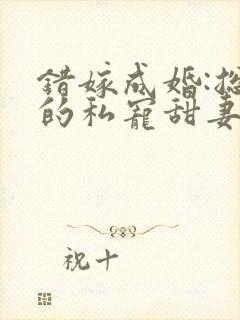 错嫁成婚:
的私宠甜妻
祝十